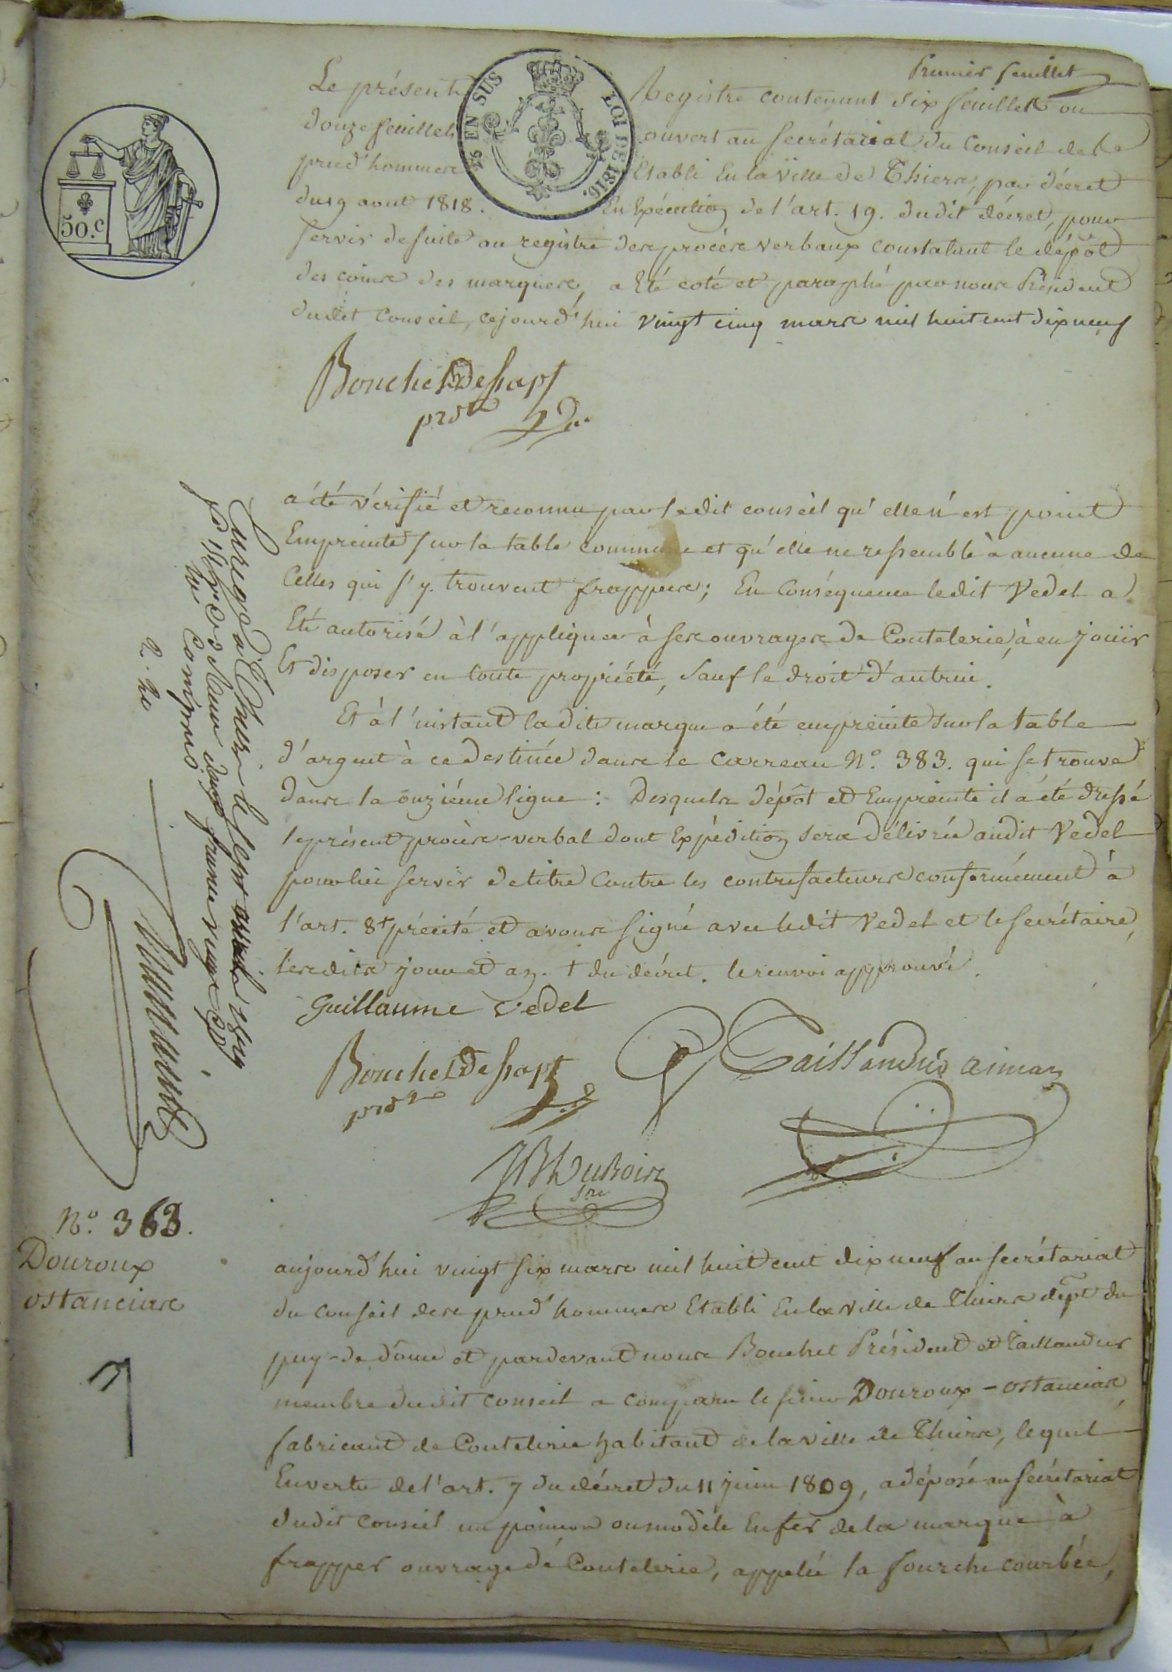 Premier feuillet
50.c
¼ EN SUS
LOI DE 1816.
Le présent Registre contenant six feuillets ou
douze feuillets ouvert au secrétariat du Conseil des
prud'hommes Etabli En la Ville de Thiers, par décret
du 19 aout 1818. En Exécution de l'art. 19. dudit décret, pour
servir de suite au registre des procès verbaux constatant le dépôt
des coins des marques, a Eté coté et paraphé par nous Président
dudit Conseil, cejourd'hui vingt cinq mars mil huit cent dix neuf
Bouchet
pdt
a été vérifié et reconnu par ledit conseil qu'elle n'est point
Empreinte sur la table commune et qu'elle ne ressemble à aucune de
Celles qui s'y trouvent frappées; En Conséquence ledit Vedel a
Eté autorisé à l'appliquer à ses ouvrages de Coutelerie, à en jouir
Et disposer en toute propriété, sauf le droit d'autrui.
Et à l'instant ladite marque a été empreinte sur la table
d'argent à ce destinée dans le Carreau N.o 383. qui se trouve
dans la onzième ligne : Desquels dépôt et Empreinte il a été dressé
le présent procès-verbal dont Expédition sera délivrée audit Vedel
pour lui servir de titre Contre les contrefacteurs conformément à
l'art. 8 + précité et avons signé avec ledit Vedel et le secrétaire,
lesdits jour et an. + du décret. le renvoi approuvé.
Guillaume Vedel
Bouchet
pdt
Taillandier
JB Dubois
sre
Enregé à Thiers le sept 1819
fo
deux francs vingt
compris
2. 20
N.o 363.
Douroux
ostancias
7
aujourd'hui vingt six mars mil huit cent dix neuf au secrétariat
du Conseil des prud'hommes Etabli En la ville de Thiers dépt. du
puy-de-dôme et pardevant nous Bouchet Président et Taillandier
membre dudit conseil a comparu le sieur Douroux - ostancias
fabricant de Coutelerie habitant de la ville de Thiers, lequel
En vertu de l'art. 7 du décret du 11 juin 1809, a déposé au secrétariat
dudit Conseil un poinçon ou modèle En fer de la marque à
frapper ouvrage de Coutelerie, appelée la fourche courbée,